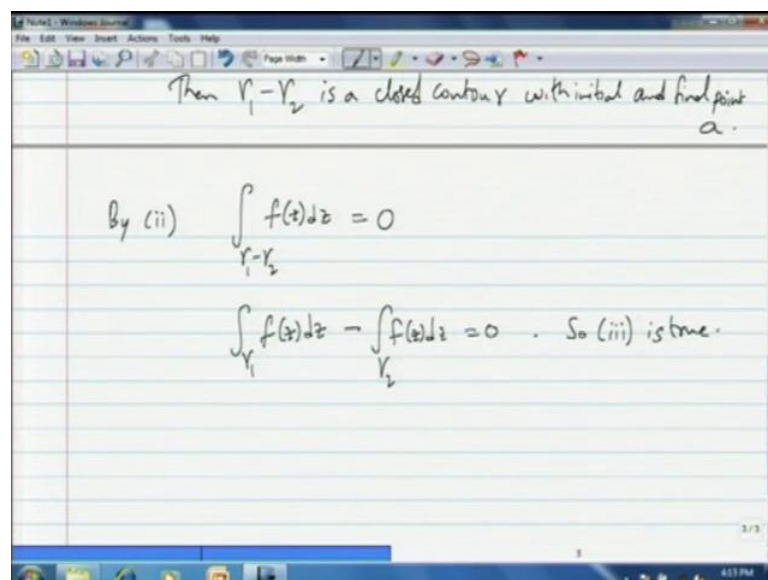 Note1 - Windows Journal
File Edit View Insert Actions Tools Help
Page Width
Then γ₁-γ₂ is a closed contour with initial and final point
a.
By (ii) ∫_{γ₁-γ₂} f(z)dz = 0
∫_{γ₁} f(z)dz - ∫_{γ₂} f(z)dz = 0 . So (iii) is true.
3/3
3
4:13 PM